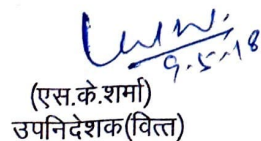 9-5-18
(एस.के.शर्मा)
उपनिदेशक(वित्त)